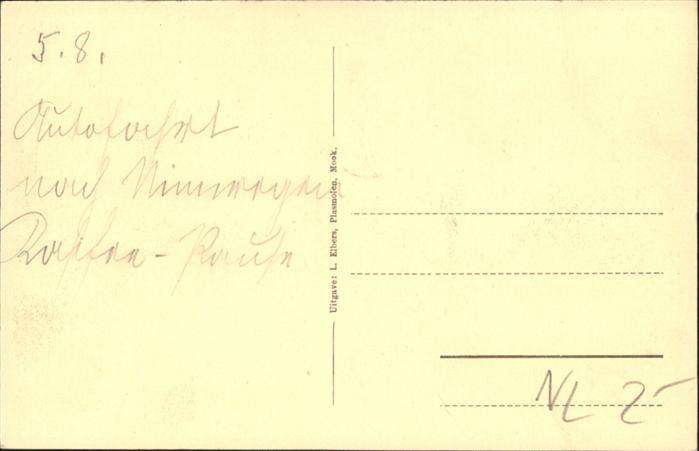 5.8.
Autofahrt
nach Nimwegen
Kaffee-Pause
Uitgave: L. Elbers, Plasmolen, Mook.
NL 2-